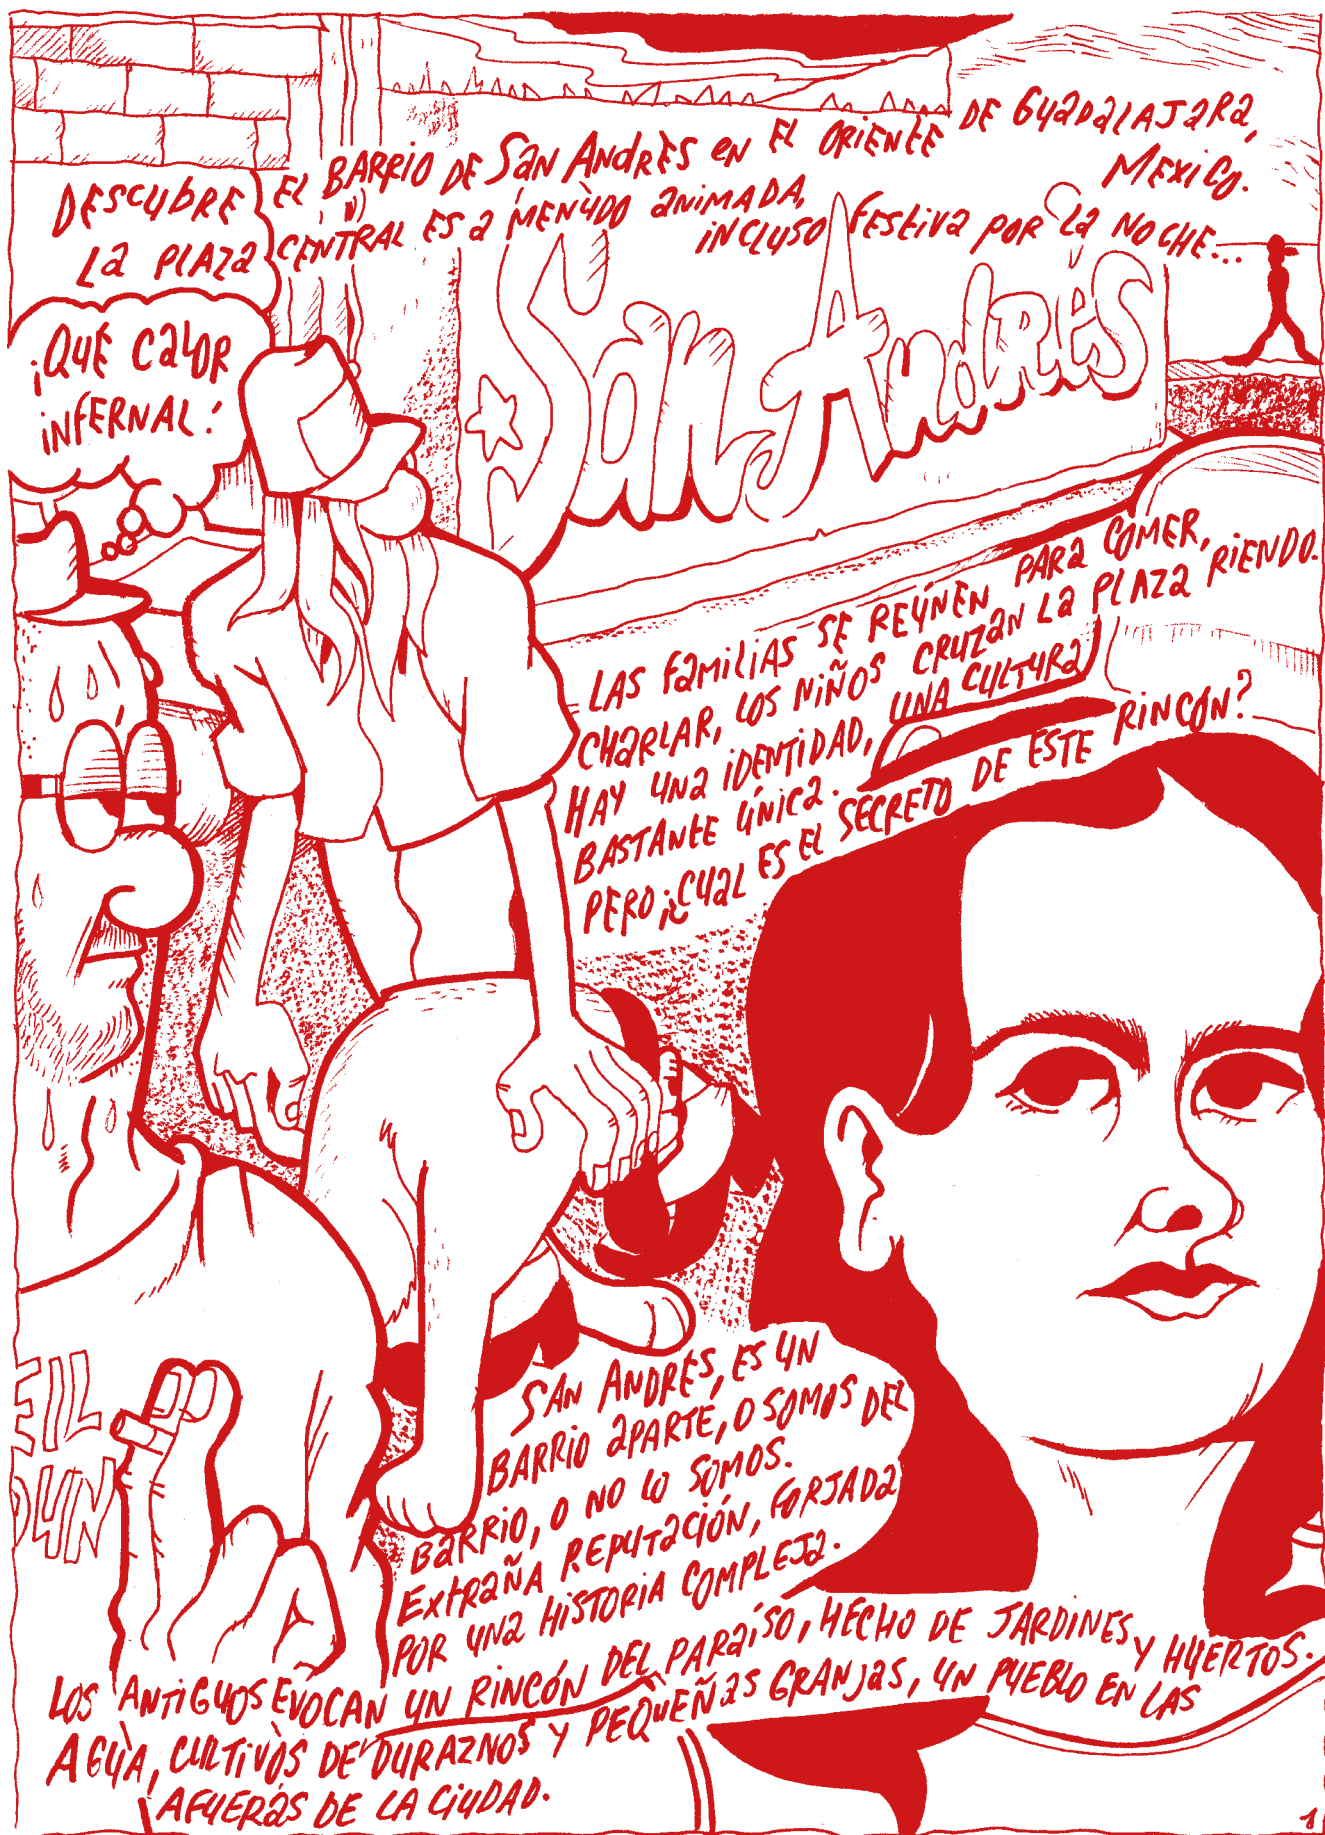 DESCUBRE EL BARRIO DE SAN ANDRÈS EN EL ORIENTE DE GUADALAJARA, MEXICO.
LA PLAZA CENTRAL ES A MENUDO ANIMADA, INCLUSO FESTIVA POR LA NOCHE...
¡QUÉ CALOR
INFERNAL!
San Andrés
LAS FAMILIAS SE REÚNEN PARA COMER,
CHARLAR, LOS NIÑOS CRUZAN LA PLAZA RIENDO.
HAY UNA IDENTIDAD, UNA CULTURA
BASTANTE ÚNICA.
PERO ¿CUAL ES EL SECRETO DE ESTE RINCÓN?
EIL
OUN
SAN ANDRÉS, ES UN
BARRIO APARTE, O SOMOS DEL
BARRIO, O NO LO SOMOS.
EXTRAÑA REPUTACIÓN, FORJADA
POR UNA HISTORIA COMPLEJA.
LOS ANTIGUOS EVOCAN UN RINCÓN DEL PARAÍSO, HECHO DE JARDINES Y HUERTOS.
AGUA, CULTIVOS DE DURAZNOS Y PEQUEÑAS GRANJAS, UN PUEBLO EN LAS
AFUERAS DE LA CIUDAD.
1